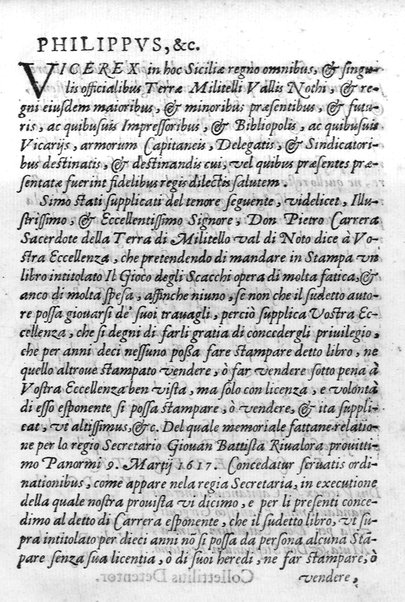 PHILIPPVS, &c.
VICEREX in hoc Siciliæ regno omnibus, & singu-
lis officialibus Terræ Militelli Vallis Nothi, & re-
gni eiusdem maioribus, & minoribus præsentibus, & futu-
ris, ac quibusuis Impressoribus, & Bibliopolis, ac quibusuis
Vicarijs, armorum Capitaneis, Delegatis, & Sindicatori
bus destinatis, & destinandis cui, vel quibus præsentes præ
sentatæ fuerint fidelibus regis dilectis salutem.
Simo stati supplicati del tenore seguente, videlicet, Illu-
strissimo, & Eccellentissimo Signore, Don Pietro Carrera
Sacerdote della Terra di Militello val di Noto dice à Vo-
stra Eccellenza, che pretendendo di mandare in Stampa vn
libro intitolato Il Gioco degli Scacchi opera di molta fatica, &
anco di molta spesa, affinche niuno, se non che il sudetto auto-
re possa giouarsi de' suoi trauagli, perciò supplica Vostra Ec-
cellenza, che si degni di farli gratia di concedergli priuilegio,
che per anni deci nessuno possa fare stampare detto libro, ne
quello altroue stampato vendere, ò far vendere sotto pena à
Vostra Eccellenza ben vista, ma solo con licenza, e volontà
di esso esponente si possa stampare, ò vendere, & ita suppli-
cat, vt altissimus, &c. Del quale memoriale fattane relatio-
ne per lo regio Secretario Giouan Battista Riualora prouitti-
mo Panormi 9. Martij 1617. Concedatur seruatis ordi-
nationibus, come appare nela regia Secretaria, in executione
della quale nostra prouista vi dicimo, e per li presenti conce-
dimo al detto di Carrera esponente, che il sudetto libro, vt su-
pra intitolato per dieci anni nō si possa da persona alcuna Stā-
pare senza sua licentia, ò di suoi heredi, ne far stampare, ò
vendere,